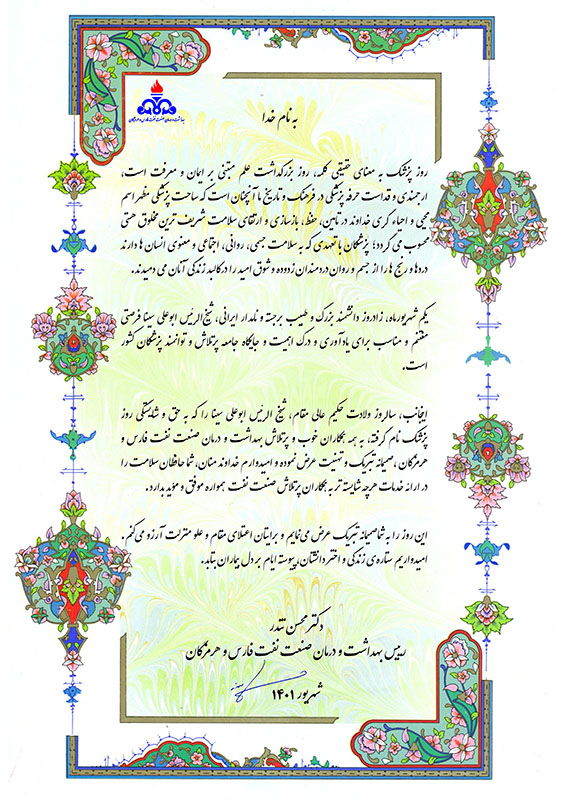 بهداشت و درمان صنعت نفت فارس و هرمزگان
به نام خدا
روز پزشک به معنای حقیقی کلمه، روز بزرگداشت علم مبتنی بر ایمان و معرفت است،
ارجمندی و قداست حرفه پزشکی در فرهنگ و تاریخ ما آنچنان است که ساحت پزشکی مظهر اسم
محیی و احیاء گری خداوند در تامین، حفظ، بازسازی و ارتقای سلامت شریف ترین مخلوق هستی
محسوب می گردد؛ پزشکان با تعهدی که به سلامت جسمی، روانی، اجتماعی و معنوی انسان ها دارند
دردها و رنج ها را از جسم و روان دردمندان زدوده و شوق امید را در کالبد زندگی آنان می دمیدند.
یکم شهریورماه، زادروز دانشمند بزرگ و طبیب برجسته و نامدار ایرانی، شیخ الرئیس ابوعلی سینا فرصتی
مغتنم و مناسب برای یادآوری و درک اهمیت و جایگاه جامعه پرتلاش و توانمند پزشکان کشور
است.
اینجانب، سالروز ولادت حکیم عالی مقام، شیخ الرئیس ابوعلی سینا را که به حق و شایستگی روز
پزشک نام گرفته، به همه همکاران خوب و پرتلاش بهداشت و درمان صنعت نفت فارس و
هرمزگان، صمیمانه تبریک و تهنیت عرض نموده و امیدوارم خداوند منان، شما حافظان سلامت را
در ارائه خدمات هرچه شایسته تر به همکاران پرتلاش صنعت نفت همواره موفق و مؤید بدارد.
این روز را به شما صمیمانه تبریک عرض می نمایم و برایتان اعتلای مقام و علو منزلت آرزو می کنم.
امیدواریم ستاره ی زندگی و اختر دانشتان، پیوسته ایام بر دل بیماران بتابد.
دکتر محسن تندر
رییس بهداشت و درمان صنعت نفت فارس و هرمزگان
شهریور ۱۴۰۱